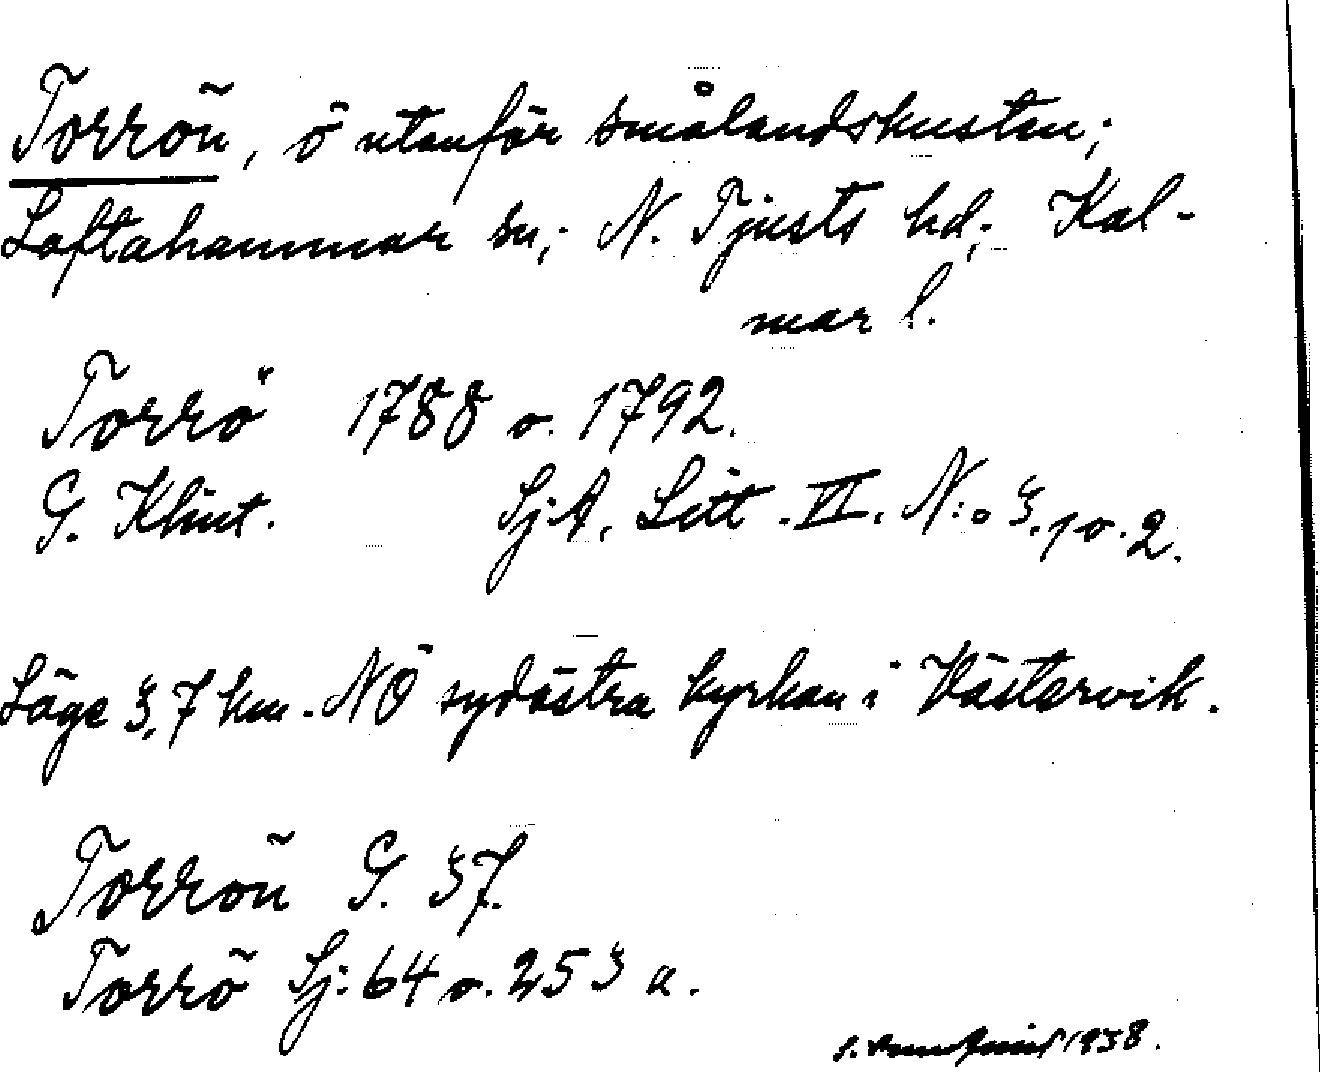 Torrön, ö utanför smålandskusten;
Loftahammar sn; N. Tjusts hd; Kal-
mar l.
Torrö 1788 o. 1792.
G. Klint. SjA. Litt. VI. N:o 3.1 o. 2.
Läge 3,7 km. NÖ sydöstra kyrkan i Västervik.
Torrön G. 37.
Torrö Sj: 64 o. 253 a.
1938.